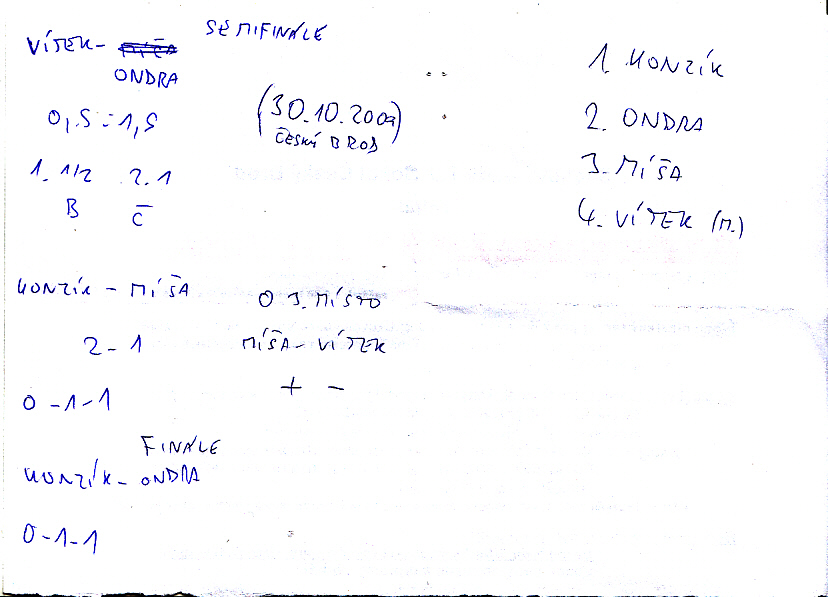 SEMIFINÁLE
VÍTEK - MÍŠA
ONDRA
0,5 : 1,5
1. 1/2 2. 1
B Č
(30.10.2009)
ČESKÝ BROD
HONZÍK - MÍŠA
2 - 1
0 - 1 - 1
O 3. MÍSTO
MÍŠA - VÍTEK
+ -
FINÁLE
HONZÍK - ONDRA
0 - 1 - 1
1. HONZÍK
2. ONDRA
3. MÍŠA
4. VÍTEK (M.)